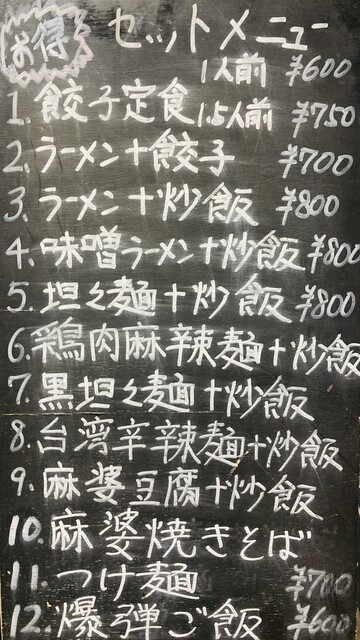 お得 セットメニュー
1人前 ¥600
1. 餃子定食 1.5人前 ¥750
2. ラーメン+餃子 ¥700
3. ラーメン+炒飯 ¥800
4. 味噌ラーメン+炒飯 ¥800
5. 坦々麺+炒飯 ¥800
6. 鶏肉麻辣麺+炒飯
7. 黒坦々麺+炒飯
8. 台湾辛辣麺+炒飯
9. 麻婆豆腐+炒飯
10. 麻婆焼きそば
11. つけ麺 ¥700
12. 爆弾ご飯 ¥600